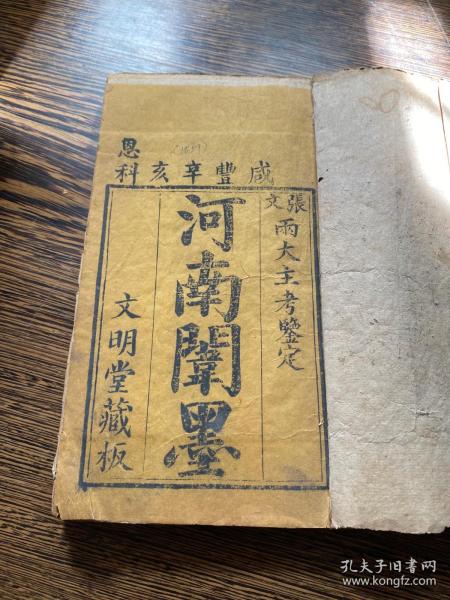 咸豐辛亥恩科
(1851)
張文兩大主考鑒定
河南闈墨
文明堂藏板
孔夫子旧书网
www.kongfz.com